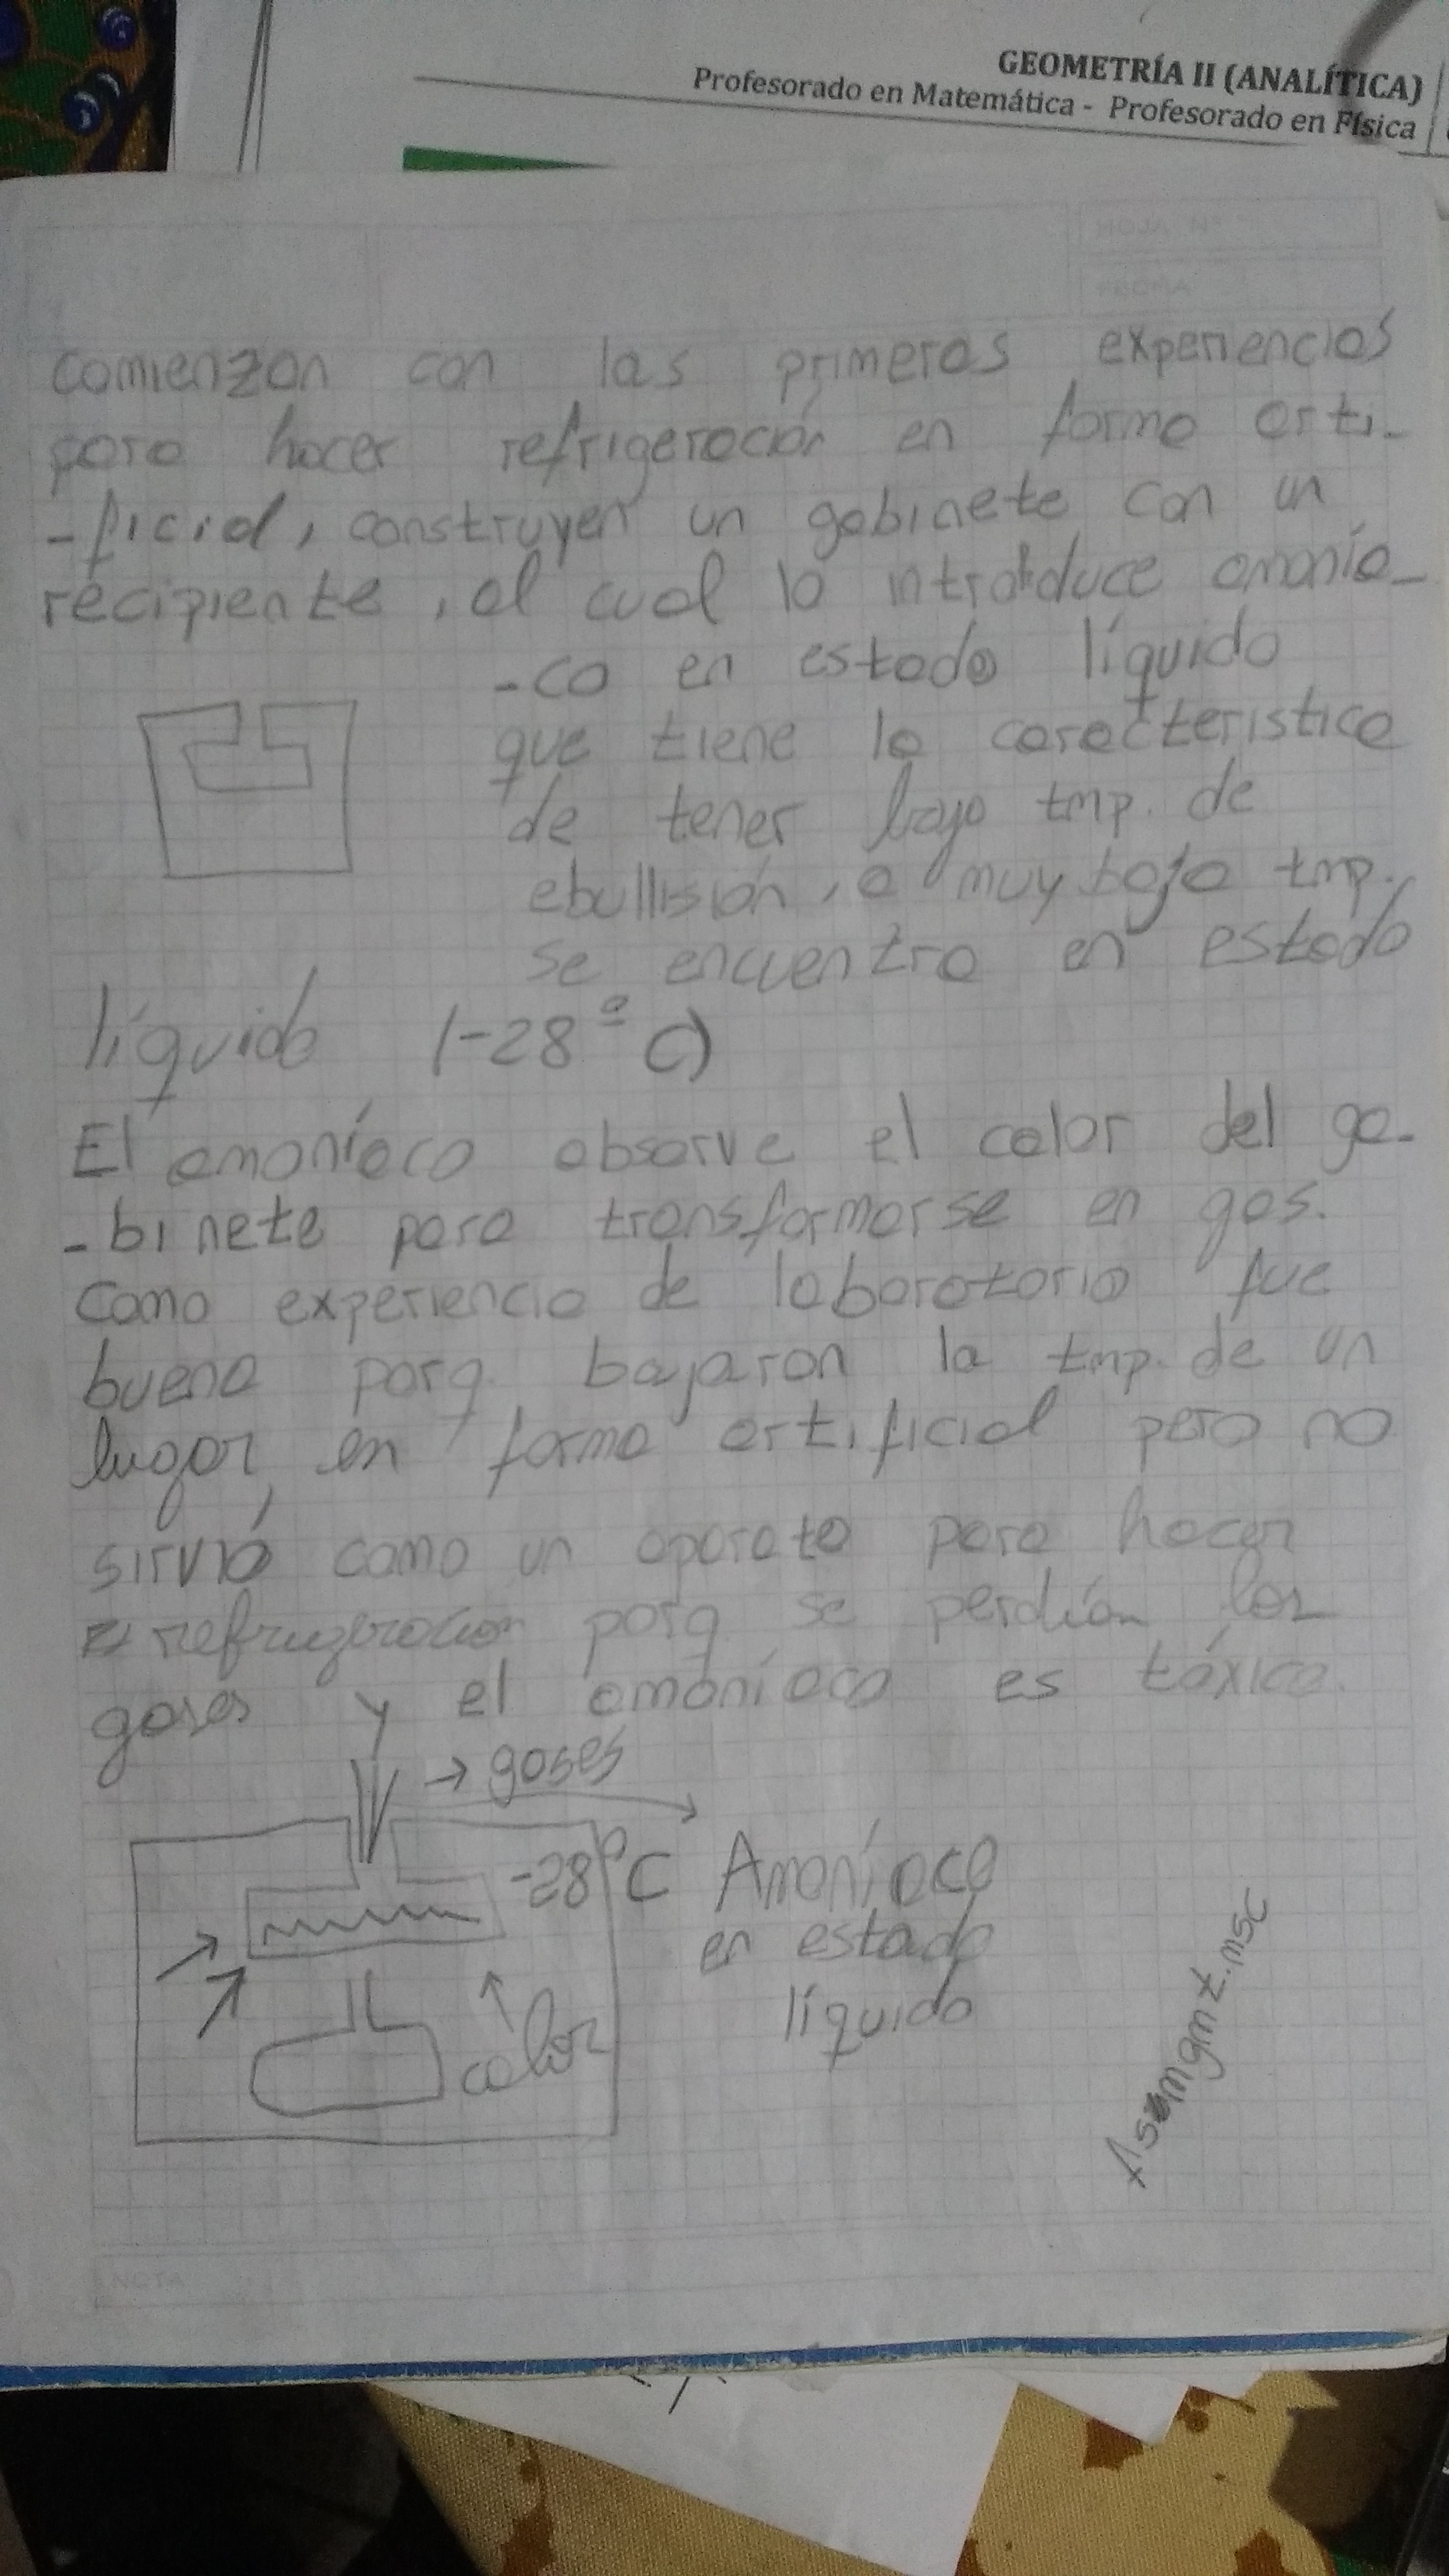 GEOMETRÍA II (ANALÍTICA)
Profesorado en Matemática - Profesorado en Física
HOJA Nº
FECHA
comienzan con las primeras experiencias
para hacer refrigeración en forma arti-
-ficial, construyen un gabinete con un
recipiente, al cual lo introduce amonía-
-co en estado líquido
que tiene la caracteristica
de tener baja tmp. de
ebullisión, a muy baja tmp.
se encuentra en estado
líquido (-28º C)
El amoníaco absorve el calor del ga-
-binete para transformarse en gas.
Como experiencia de laboratorio fue
buena porq. bajaron la tmp. de un
lugar en forma artificial pero no
sirvió como un aparato para hacer
refrigeración porq se perdían los
gases y el amoníaco es tóxico.
→ gases
-28ºC Amoníaco
en estado
líquido
calor
NOTA